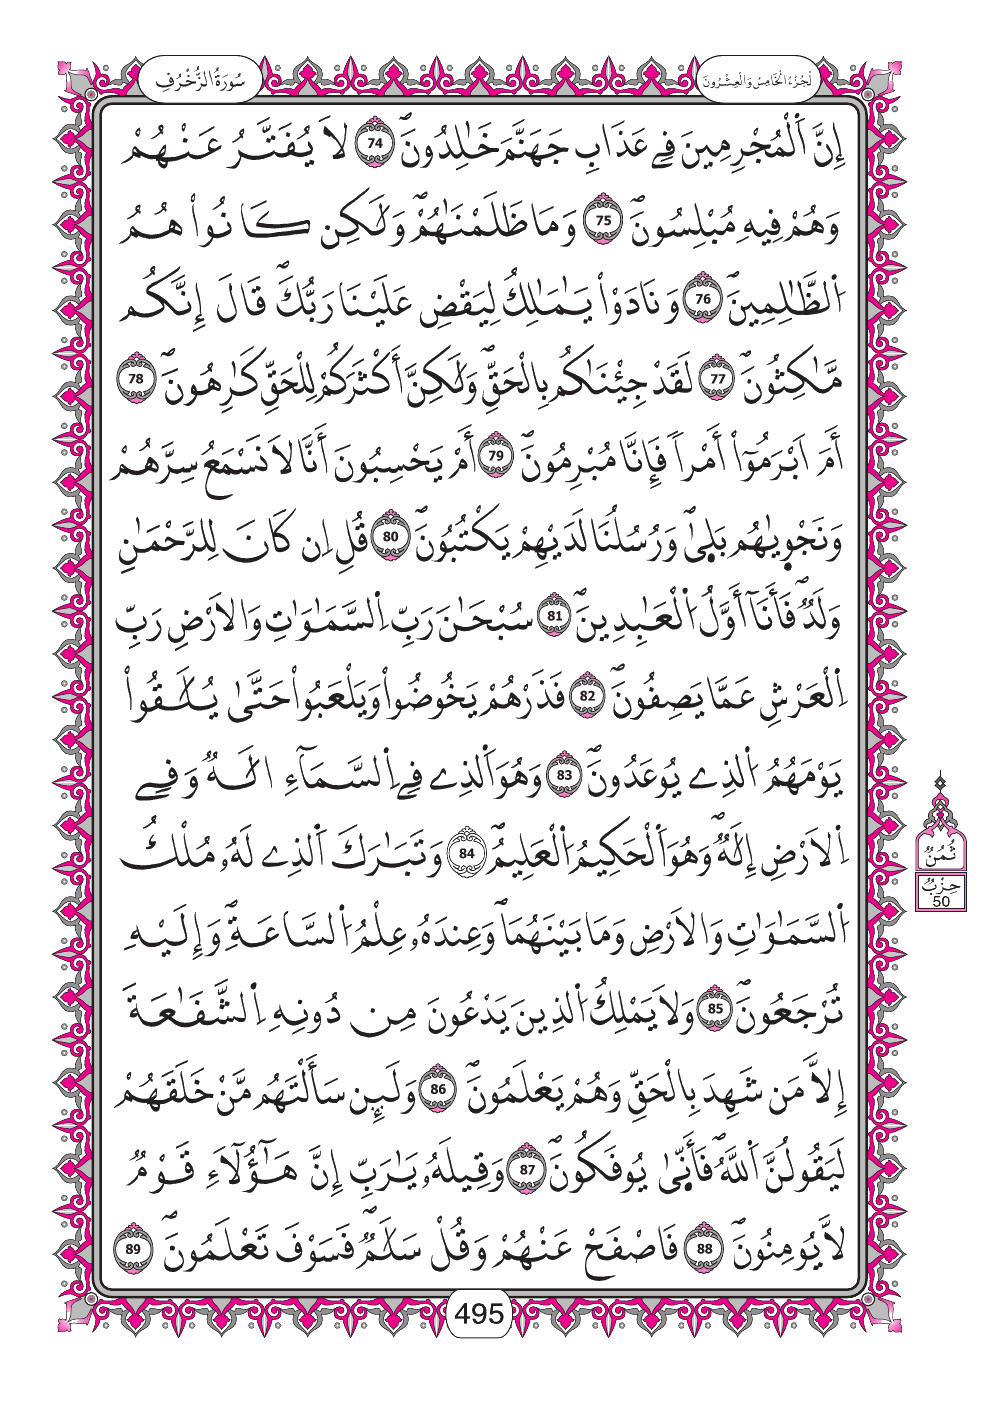 سُورَةُ الزُّخْرُفِ
اَلْجُزْءُ الْخَامِسُ وَالْعِشْرُونَ
إِنَّ اَ۬لْمُجْرِمِينَ فِے عَذَابِ جَهَنَّمَ خَٰلِدُونَۖ 74 لَا يُفَتَّرُ عَنْهُمْ
وَهُمْ فِيهِ مُبْلِسُونَۖ 75 وَمَا ظَلَمْنَٰهُمْۖ وَلَٰكِن كَانُواْ هُمُ
اُ۬لظَّٰلِمِينَۖ 76 وَنَادَوْاْ يَٰمَٰلِكُ لِيَقْضِ عَلَيْنَا رَبُّكَۖ قَالَ إِنَّكُم
مَّٰكِثُونَۖ 77 لَقَدْ جِئْنَٰكُم بِالْحَقِّۖ وَلَٰكِنَّ أَكْثَرَكُمْ لِلْحَقِّ كَٰرِهُونَۖ 78
أَمَ اَبْرَمُوٓاْ أَمْراٗ فَإِنَّا مُبْرِمُونَۖ 79 أَمْ يَحْسِبُونَ أَنَّا لَا نَسْمَعُ سِرَّهُمْ
وَنَجْو۪يٰهُم بَل۪ىٰۖ وَرُسُلُنَا لَدَيْهِمْ يَكْتُبُونَۖ 80 قُلِ اِن كَانَ لِلرَّحْمَٰنِ
وَلَدٞۖ فَأَنَآ أَوَّلُ اُ۬لْعَٰبِدِينَۖ 81 سُبْحَٰنَ رَبِّ اِ۬لسَّمَٰوَٰتِ وَالَارْضِ رَبِّ
اِ۬لْعَرْشِ عَمَّا يَصِفُونَۖ 82 فَذَرْهُمْ يَخُوضُواْ وَيَلْعَبُواْ حَتَّىٰ يُلَٰقُواْ
يَوْمَهُمُ اُ۬لذِے يُوعَدُونَۖ 83 وَهُوَ اَ۬لذِے فِے اِ۬لسَّمَآءِ اِلَٰهٞ وَفِے
اِ۬لَارْضِ إِلَٰهٞۖ وَهُوَ اَ۬لْحَكِيمُ اُ۬لْعَلِيمُۖ 84 وَتَبَٰرَكَ اَ۬لذِے لَهُۥ مُلْكُ
اُ۬لسَّمَٰوَٰتِ وَالَارْضِ وَمَا بَيْنَهُمَاۖ وَعِندَهُۥ عِلْمُ اُ۬لسَّاعَةِۖ وَإِلَيْهِ
تُرْجَعُونَۖ 85 وَلَا يَمْلِكُ اُ۬لذِينَ يَدْعُونَ مِن دُونِهِ اِ۬لشَّفَٰعَةَ
إِلَّا مَن شَهِدَ بِالْحَقِّ وَهُمْ يَعْلَمُونَۖ 86 وَلَئِن سَأَلْتَهُم مَّنْ خَلَقَهُمْ
لَيَقُولُنَّ اَ۬للَّهُۖ فَأَنّ۪ىٰ يُوفَكُونَۖ 87 وَقِيلَهُۥ يَٰرَبِّ إِنَّ هَٰٓؤُلَآءِ قَوْمٞ
لَّا يُومِنُونَۖ 88 فَاصْفَحْ عَنْهُمْ وَقُلْ سَلَٰمٞۖ فَسَوْفَ تَعْلَمُونَۖ 89
ثُمُنٌ
حِزْبٌ
50
495